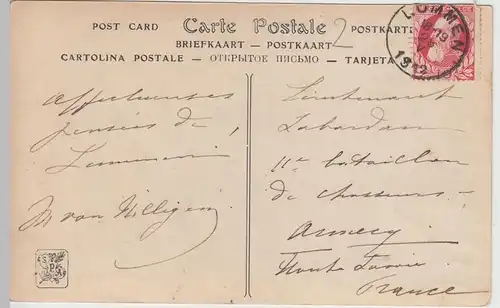 POST CARD Carte Postale POSTKARTE
BRIEFKAART - POSTKAART
CARTOLINA POSTALE - ОТКРЫТОЕ ПИСЬМО - TARJETA
2
LUMMEN
19
1912
Affectueuses
pensées de
Lummen
M van Willigen
Lieutenant
Labordan
11e bataillon
de chasseurs
Annecy
Haute Savoie
France